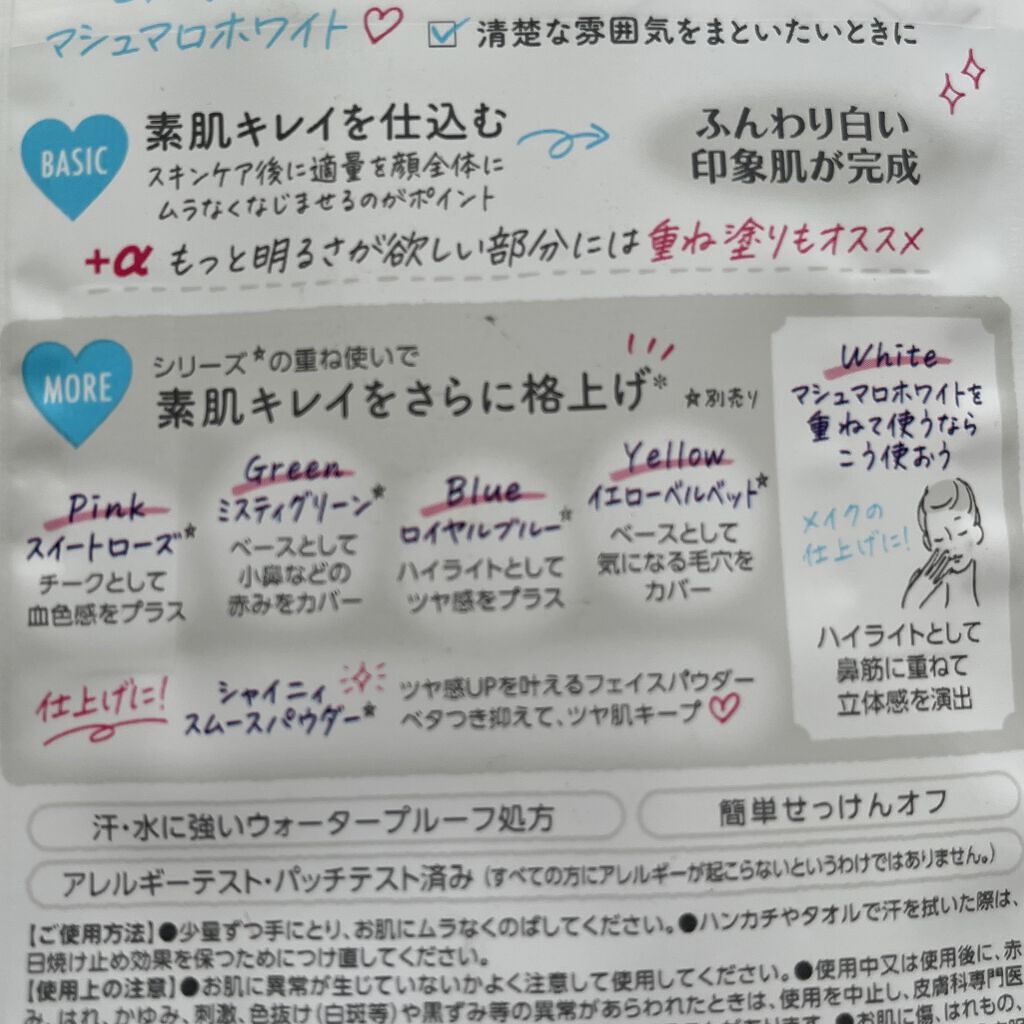 マシュマロホワイト♡
☑清楚な雰囲気をまといたいときに
BASIC
素肌キレイを仕込む
スキンケア後に適量を顔全体に
ムラなくなじませるのがポイント
ふんわり白い
印象肌が完成
+α もっと明るさが欲しい部分には重ね塗りもオススメ
MORE
シリーズ☆の重ね使いで
素肌キレイをさらに格上げ※ ☆別売り
Pink
スイートローズ☆
チークとして
血色感をプラス
Green
ミスティグリーン☆
ベースとして
小鼻などの
赤みをカバー
Blue
ロイヤルブルー☆
ハイライトとして
ツヤ感をプラス
Yellow
イエローベルベット☆
ベースとして
気になる毛穴を
カバー
仕上げに!
シャイニィ
スムースパウダー☆
ツヤ感UPを叶えるフェイスパウダー
ベタつき抑えて、ツヤ肌キープ♡
White
マシュマロホワイトを
重ねて使うなら
こう使おう
メイクの
仕上げに!
ハイライトとして
鼻筋に重ねて
立体感を演出
汗・水に強いウォータープルーフ処方
簡単せっけんオフ
アレルギーテスト・パッチテスト済み(すべての方にアレルギーが起こらないというわけではありません。)
【ご使用方法】●少量ずつ手にとり、お肌にムラなくのばしてください。●ハンカチやタオルで汗を拭いた際は、
日焼け止め効果を保つためにつけ直してください。
【使用上の注意】●お肌に異常が生じていないかよく注意して使用してください。●使用中又は使用後に、赤
み、はれ、かゆみ、刺激、色抜け(白斑等)や黒ずみ等の異常があらわれたときは、使用を中止し、皮膚科専門医
●お肌に傷、はれもの、